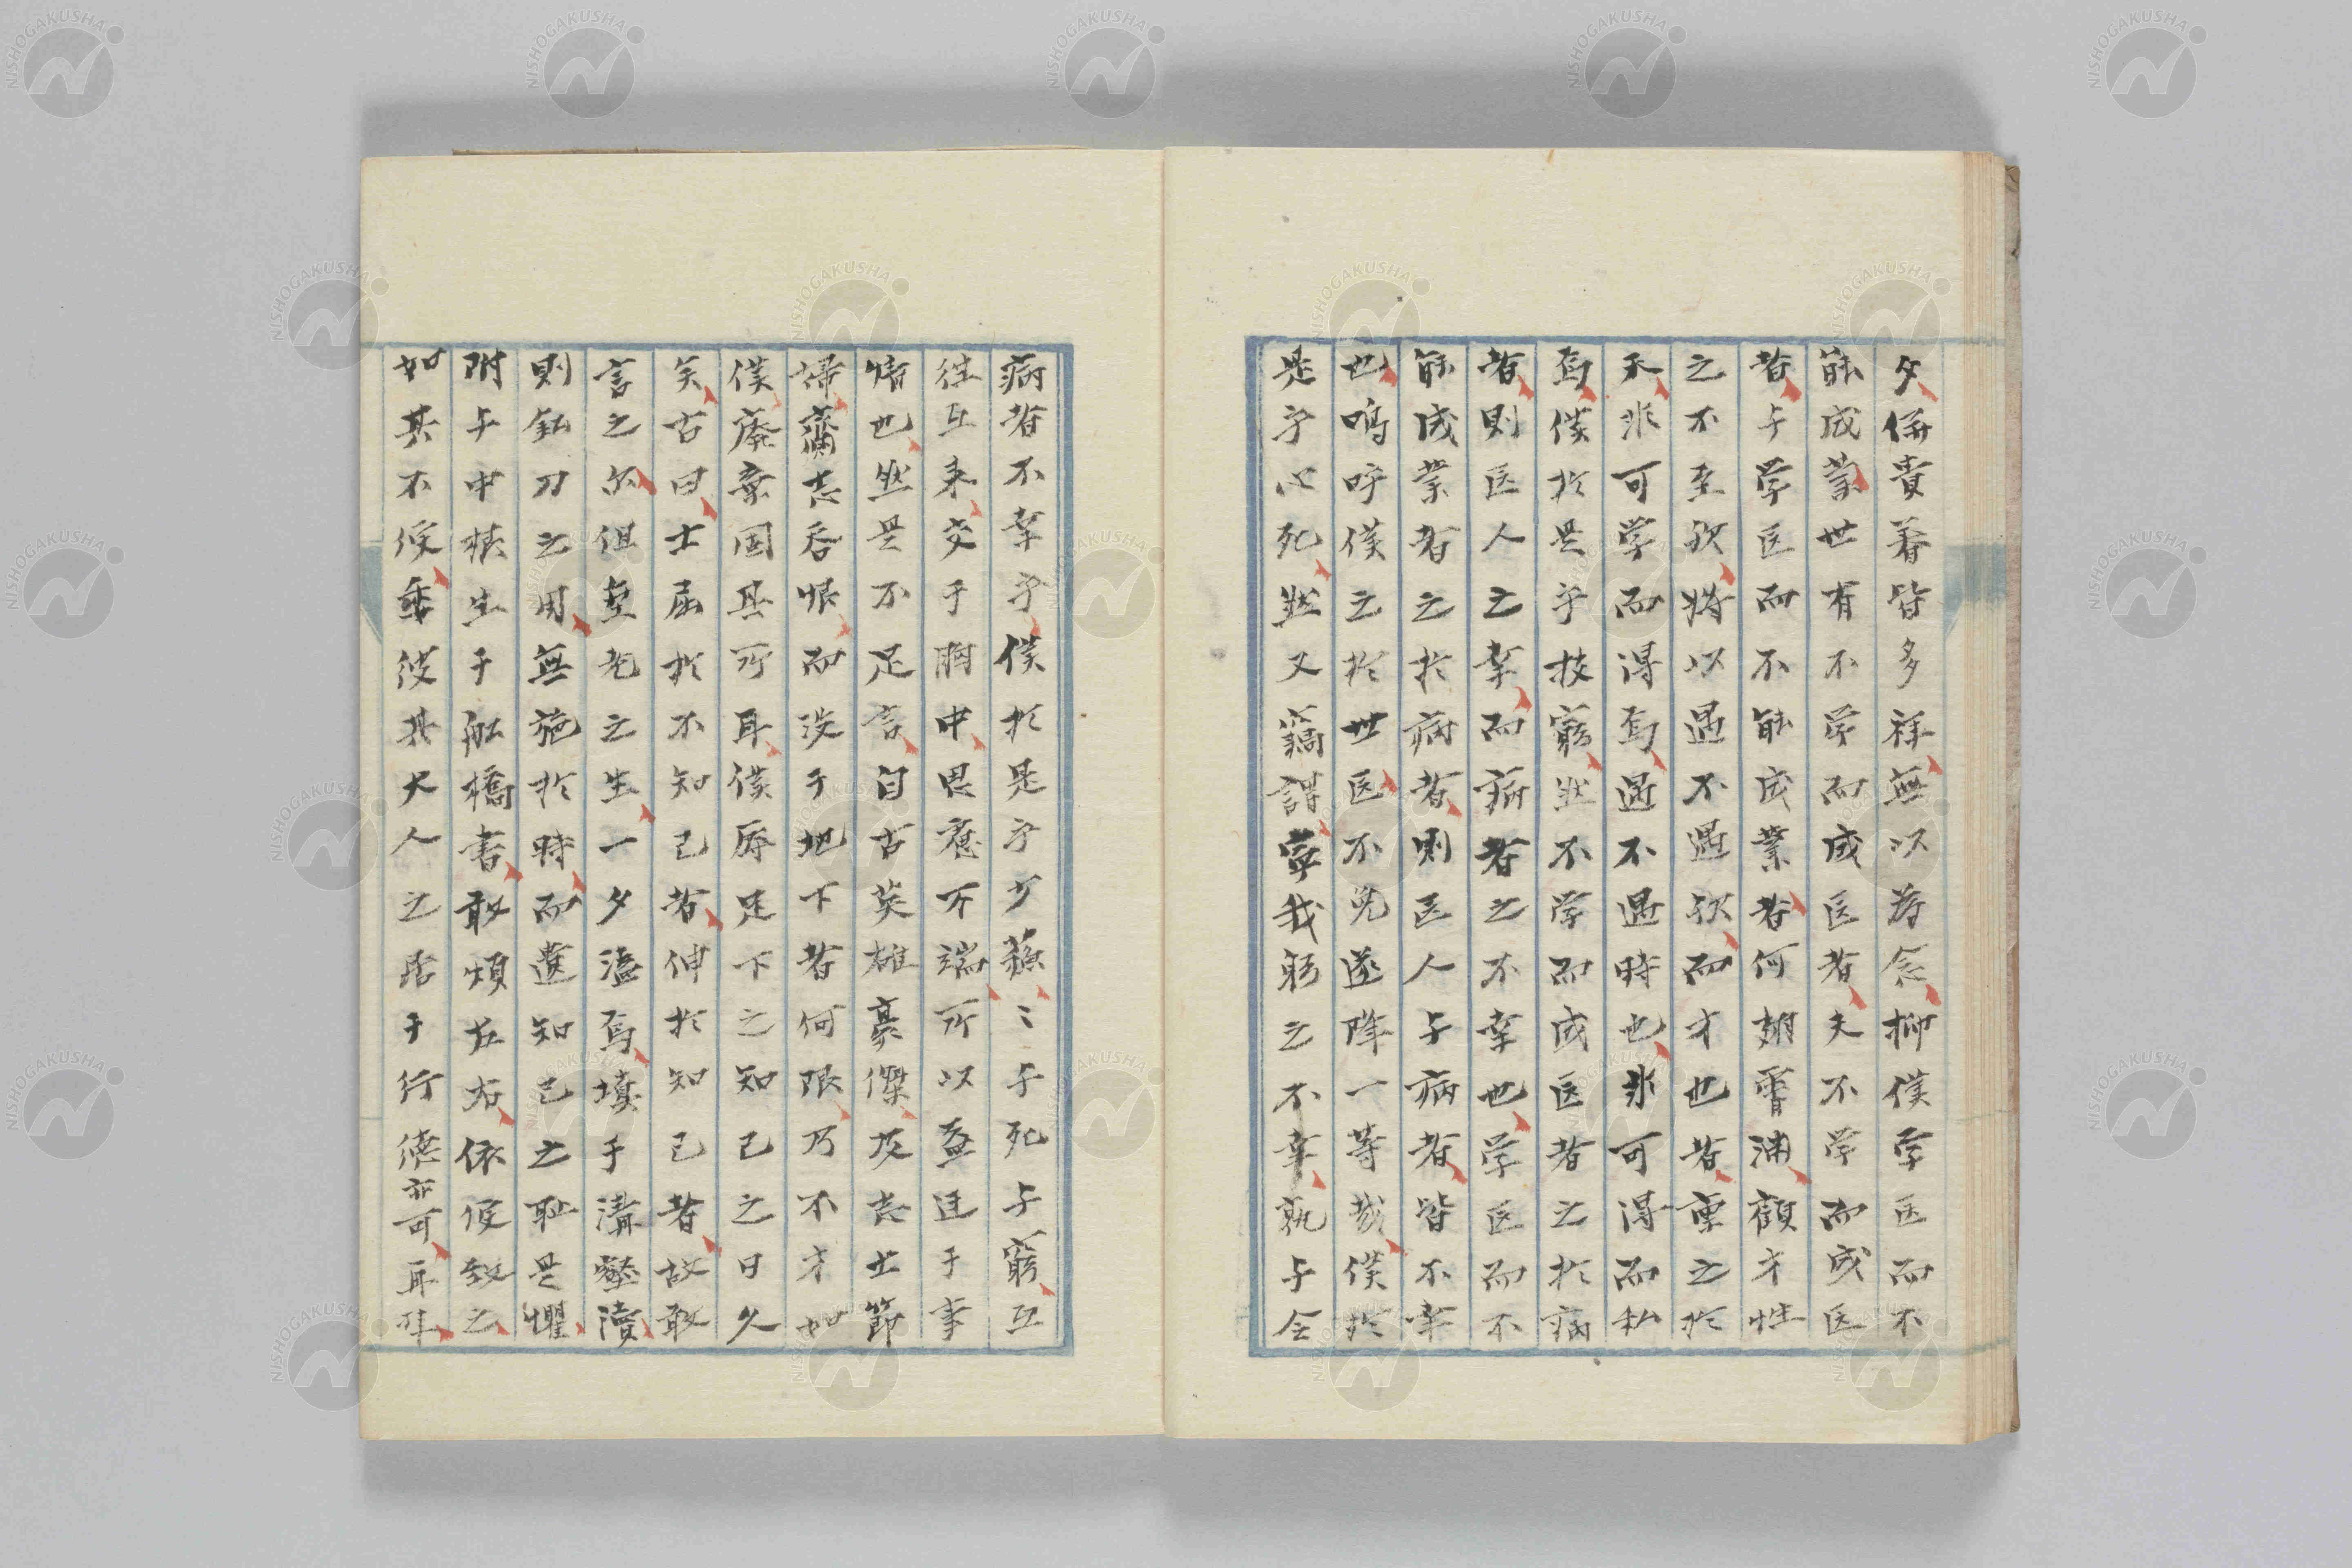 夕併責着皆多祥無以為念抑僕学医而不
能成業世有不学而成医者夫不学而成医
者与学医而不能成業者何翅霄淵顧才性
之不至欤将以遇不遇欤而才也者重之於
天非可学而得焉遇不遇時也非可得而私
焉僕於是乎技窮然不学而成医者之於病
者則医人之幸而病者之不幸也学医而不
能成業者之於病者則医人与病者皆不幸
也嗚呼僕之於世医不免遂降一等哉僕於
是乎心死然又竊謂寧我躬之不幸孰与令
病者不幸乎僕於是乎少蘇〻乎死与窮互
往互来交于胸中思慮万端所以並迋于事
情也然是不足言自古英雄豪傑及志士節
婦齎志呑恨而没于地下者何限乃不才如
僕廃棄固其所耳僕辱足下之知己之日久
矣古曰士屈於不知己者伸於知己者故敢
言之尓但皇老之生一夕溘焉填于溝壑瀆
則鉛刀之用無施於時而遺知己之恥是懼
附与中根生于舩橋書敢煩左右依便致之
如其不便乗彼其大人之居于行徳亦可耳